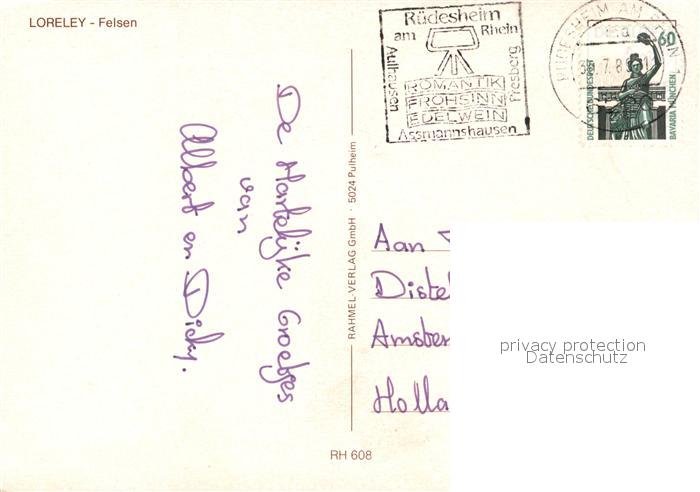 LORELEY - Felsen
Rüdesheim
am Rhein
Aulhausen
Presberg
ROMANTIK
FROHSINN
EDELWEIN
Assmannshausen
RÜDESHEIM AM
60
DEUTSCHE BUNDESPOST
BAVARIA MÜNCHEN
De Hartelijke Groetjes
van
Albert en Dicky.
RAHMEL-VERLAG GmbH · 5024 Pulheim
Aan
Diste
Amster
Holla
privacy protection
Datenschutz
RH 608